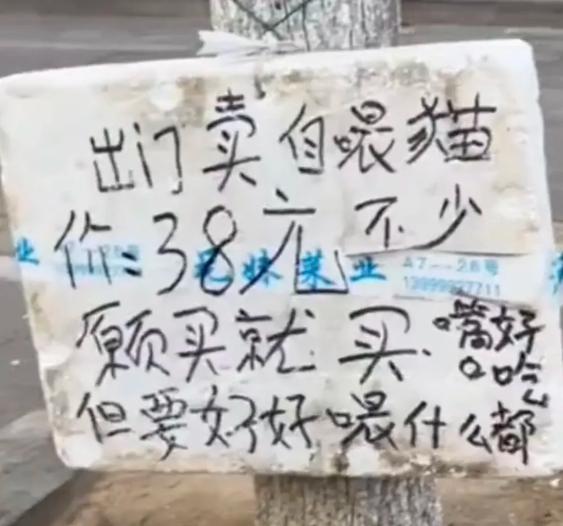 出门卖自喂猫
价:38元不少
愿买就买.嘴好
但要好好喂什么都吃
妹菜业
A7--26号